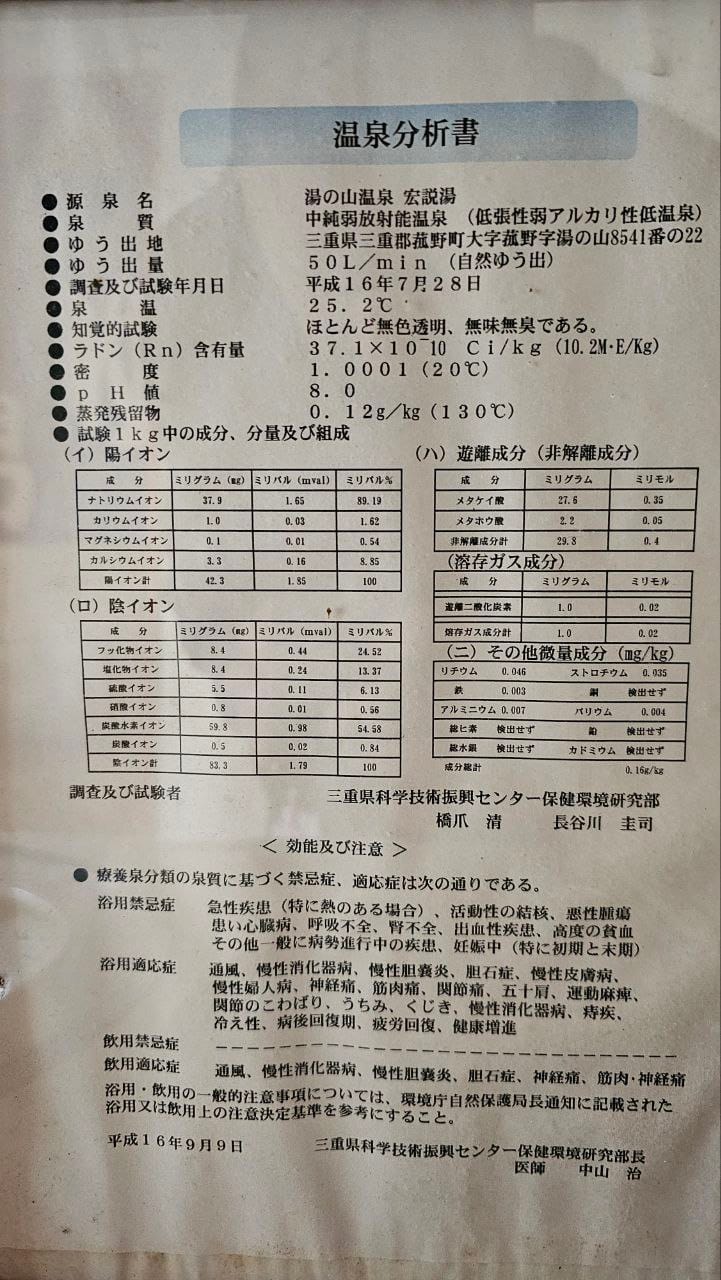 温泉分析書
● 源泉名 湯の山温泉 宏説湯
● 泉質 中純弱放射能温泉 (低張性弱アルカリ性低温泉)
● ゆう出地 三重県三重郡菰野町大字菰野字湯の山8541番の22
● ゆう出量 50L/min (自然ゆう出)
● 調査及び試験年月日 平成16年7月28日
● 泉温 25.2℃
● 知覚的試験 ほとんど無色透明、無味無臭である。
● ラドン(Rn)含有量 37.1×10⁻10 Ci/kg (10.2M·E/Kg)
● 密度 1.0001(20℃)
● pH値 8.0
● 蒸発残留物 0.12g/kg(130℃)
● 試験1kg中の成分、分量及び組成
(イ)陽イオン
成分 ミリグラム(mg) ミリバル(mval) ミリバル%
ナトリウムイオン 37.9 1.65 89.19
カリウムイオン 1.0 0.03 1.62
マグネシウムイオン 0.1 0.01 0.54
カルシウムイオン 3.3 0.16 8.85
陽イオン計 42.3 1.85 100
(ロ)陰イオン
成分 ミリグラム(mg) ミリバル(mval) ミリバル%
フッ化物イオン 8.4 0.44 24.52
塩化物イオン 8.4 0.24 13.37
硫酸イオン 5.5 0.11 6.13
硝酸イオン 0.8 0.01 0.56
炭酸水素イオン 59.8 0.98 54.58
炭酸イオン 0.5 0.02 0.84
陰イオン計 83.3 1.79 100
(ハ)遊離成分(非解離成分)
成分 ミリグラム ミリモル
メタケイ酸 27.6 0.35
メタホウ酸 2.2 0.05
非解離成分計 29.8 0.4
(溶存ガス成分)
成分 ミリグラム ミリモル
遊離二酸化炭素 1.0 0.02
溶存ガス成分計 1.0 0.02
(ニ)その他微量成分(mg/kg)
リチウム 0.046 ストロチウム 0.035
鉄 0.003 銅 検出せず
アルミニウム 0.007 バリウム 0.004
総ヒ素 検出せず 鉛 検出せず
総水銀 検出せず カドミウム 検出せず
成分総計 0.16g/kg
調査及び試験者 三重県科学技術振興センター保健環境研究部
橋爪 清 長谷川 圭司
< 効能及び注意 >
● 療養泉分類の泉質に基づく禁忌症、適応症は次の通りである。
浴用禁忌症 急性疾患(特に熱のある場合)、活動性の結核、悪性腫瘍
患い心臓病、呼吸不全、腎不全、出血性疾患、高度の貧血
その他一般に病勢進行中の疾患、妊娠中(特に初期と末期)
浴用適応症 通風、慢性消化器病、慢性胆嚢炎、胆石症、慢性皮膚病、
慢性婦人病、神経痛、筋肉痛、関節痛、五十肩、運動麻痺、
関節のこわばり、うちみ、くじき、慢性消化器病、痔疾、
冷え性、病後回復期、疲労回復、健康増進
飲用禁忌症 ------------------------------
飲用適応症 通風、慢性消化器病、慢性胆嚢炎、胆石症、神経痛、筋肉・神経痛
浴用・飲用の一般的注意事項については、環境庁自然保護局長通知に記載された
浴用又は飲用上の注意決定基準を参考にすること。
平成16年9月9日 三重県科学技術振興センター保健環境研究部長
医師 中山 治